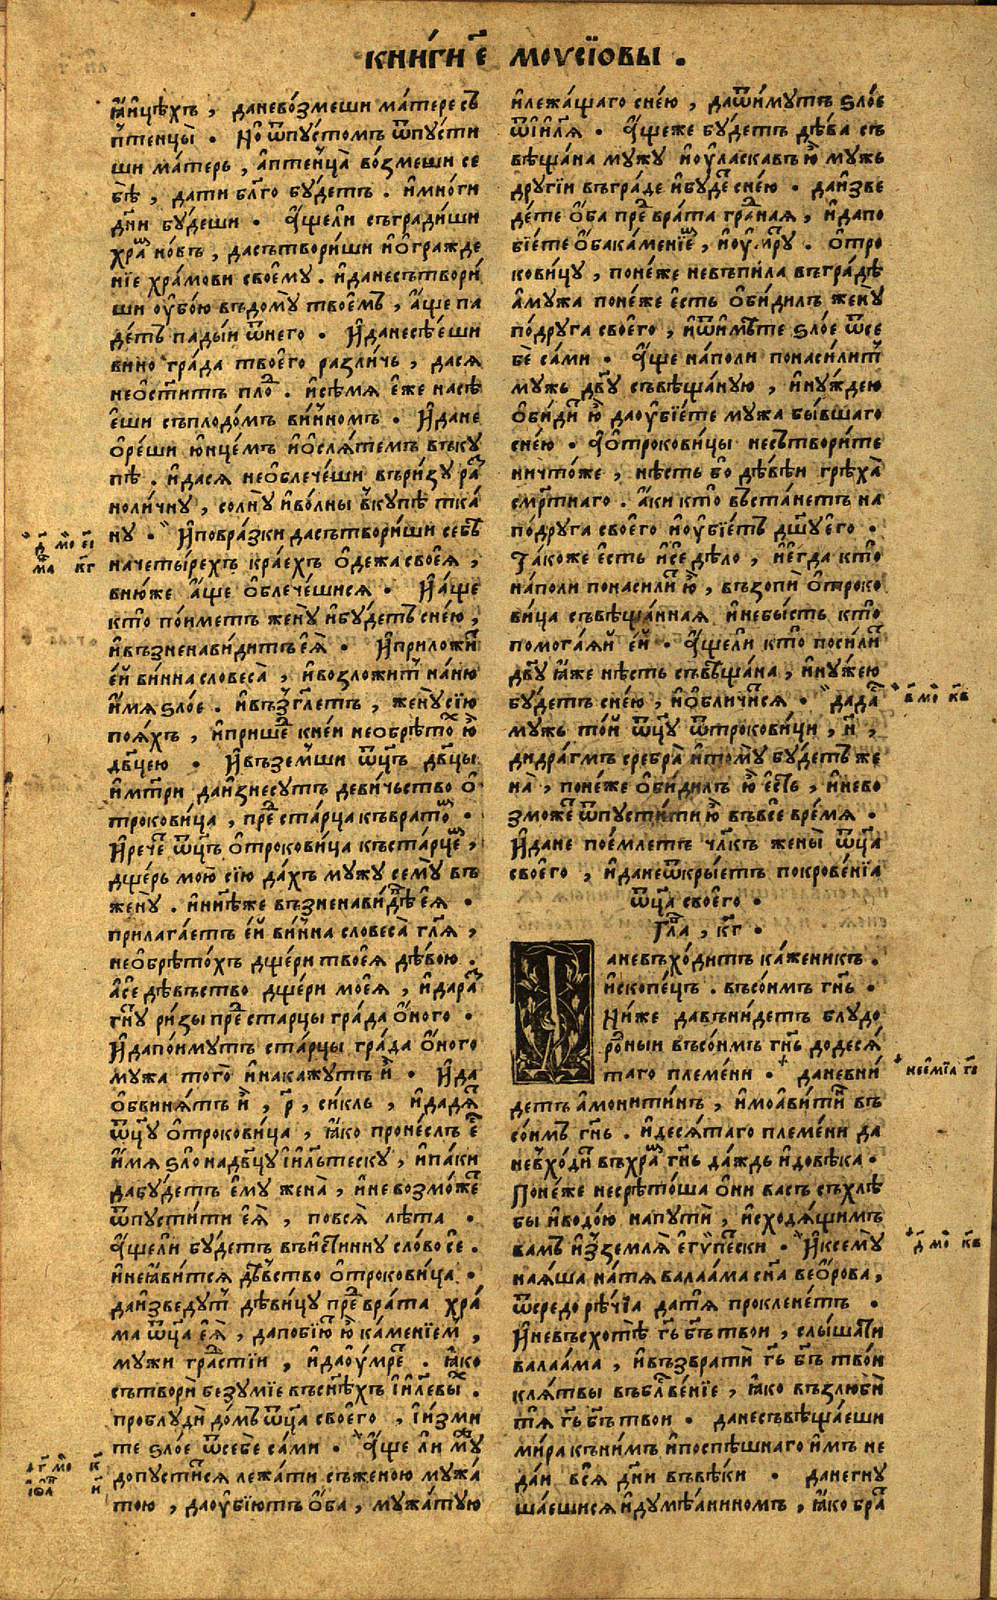 КНИ́ГИ Е҃ МОѴСЇОВЫ .
ꙗ҆и҆цѣхъ , данево́змеши ма́тере съ
пт҃енцы̀ . Но ѿпу́стомъ ѿпу́сти
ши ма́терь , а҆птенца̀ во́змеши се
бѣ̀ , дати бл҃го бу́детъ . и҆мно́ги
дн҃и бу́деши . А҆́щели съгради́ши
хра́ⷨ но́въ , дасътвори́ши и҆о҆гражде
нїе хра́мови своемꙋ . и҆данесътвори́
ши оу҆бо́ю въдомꙋ̀ твое́мъ , а҆́ще па
де́тъ па́дыи ѿнего . И҆данесѣ́еши
вино гра́да твоего̀ разли́чь , дася
неѡсти́тъ пло́ⷣ . и҆сѣ́мя е҆́же насѣ́
еши съплодо́мъ ви́ннымъ . И҆дане
о҆ре́ши ю҆нце́мъ и҆о҆сля́темъ въкꙋ
пѣ . и҆дася необлече́ши въри́зꙋ ра́ⷥ
ноли́чнꙋ , со́лнꙋ и҆во́лны вкꙋпѣ тка́
нꙋ . И҆повра́зки дасътвори́ши себѣ̀
начеты́рехъ кра́ехъ о҆де́жа своея̀ ,
вню́же а҆́ще о҆блече́шися . И҆а́ще
кто̀ по́иметъ женꙋ̀ и҆бꙋ́детъ сне́ю ,
и҆възненави́дитъ е҆ѧ̀ . И҆прило́жиⷮ
е҆́й ви́нна словеса̀ , и҆возло́житъ на́ню
и҆́мя ѕло́е . и҆възⷢ҇летъ , женꙋсїю̀
поя́хъ , и҆прише́ⷣ кне́и необрѣто́ⷯ ю҆̀
дв҃цею . И҆възе́мши ѿц҃ъ дв҃цы
и҆мт҃ри даи҆знесꙋ́тъ деви́чьство о҆
трокови́ца , пре́ⷣ ста́рца къврато́ⷨ .
И҆рече́ ѿц҃ъ о҆трокови́ца къста́рцеⷨ ,
дще́рь мою̀ сїю̀ да́хъ мꙋжꙋ семꙋ̀ въ
женꙋ̀ . и҆нн҃ѣже възненави́дѣ е҆ѧ̀ .
прилага́етъ е҆́й ви́нна словеса̀ гл҃я ,
необрѣто́хъ дще́ри твоея̀ дѣ́вою .
а҆сѐ дѣ́въство дще́ри моея̀ , и҆дара́ⷥ
гнꙋ ри́зы пре́ⷣ старцы гра́да о҆́ного .
И҆дапо́имꙋтъ ста́рцы гра́да о҆́ного
мꙋ́жа того̀ и҆нака́жꙋтъ и҆̀ . И҆да
о҆бвиня́тъ и҆̀ , р҃ , си́кль , и҆дадя́ⷮ
ѿц҃ꙋ о҆трокови́ца , ꙗ҆́ко проне́слъ е҆́ⷭ
и҆́мя ѕло̀ надв҃цꙋ і҆и҃льтескꙋ , и҆па́ки
дабꙋ́детъ е҆мꙋ̀ жена̀ , и҆невозмо́жеⷮ
ѿпꙋсти́ти е҆ѧ̀ , повся̀ лѣ́та .
А҆́щели бꙋ́детъ въи҆́стиннꙋ сло́во сѐ .
и҆неꙗ҆ви́тся дѣ́вство о҆трокови́ца .
даи҆зведꙋ́тъ дѣви́цꙋ пре́ⷣ врата̀ хра́
ма ѿц҃а е҆ѧ̀ , дапобїю́ⷮ ю҆̀ ка́менїемъ ,
мꙋ́жи гра́ⷣстїи , и҆даоу҆́мреⷮ . ꙗ҆́ко
сътворѝ безꙋ́мїе въсн҃ѣхъ і҆и҃левыⷯ .
проблꙋдѝ до́мъ ѿц҃а своего̀ , и҆и҆́зми
те ѕло́е ѿсебе са́ми . А҆́ще ли мꙋ́ⷤ
допꙋсти́тся лежа́ти съжено́ю мꙋжа́
тою , даоу҆бїю́тъ о҆́ба , мꙋжа́тꙋю
Д҃ мо҃ є҃і
ма к҃г
о҃г мо҃ к҃
іѡ҃а и҃
и҆лежа́щаго сне́ю , даѿи́мꙋтъ ѕло́е
ѿі҆и҃ля . А҆́щеже бꙋ́детъ дѣ́ва съ
вѣщана мꙋжꙋ и҆оу҆ласкавъ ю҆̀ мꙋжь
дрꙋгїи въгра́де и҆бꙋ́де́ⷮ сне́ю . даи҆зве
де́те о҆́ба пре́ⷣ врата гра́ⷣная , и҆дапо
бїе́те о҆́бака́менїеⷨ , и҆оу҆́мрꙋ . о҆тро
кови́цꙋ , поне́же невъпи́ла въгра́дѣ
а҆мꙋ́жа поне́же е҆́сть о҆би́дилъ женꙋ̀
по́дрꙋга своего̀ , и҆ѿимѣ́те ѕло́е ѿсе
бѐ са́ми . А҆́ще на́поли пона́силитъ
мꙋжь дв҃ꙋ съвѣща́нꙋю , и҆нꙋ́ждею
о҆би́диⷮ ю҆̀ даоу҆бїе́те мꙋ́жа бы́вшаго
сне́ю . А҆о҆трокови́цы несътвори́те
ничто́же , нѣ́сть бо дѣ́вѣи грѣха̀
смр҃тнаго . а҆́ки кто̀ въста́нетъ на
по́дрꙋга своего̀ и҆оу҆бїе́тъ дш҃ꙋ е҆го̀ .
Та́коже е҆́сть и҆сѐ дѣ́ло , и҆е҆гда̀ кто̀
на́поли понаси́лиⷮ ю҆̀ , възопѝ о҆троко
ви́ца съвѣща́нная и҆небы́сть кто̀
помога́яй е҆́й . А҆́щели кто̀ поси́лиⷮ
дв҃ꙋ ꙗ҆́же нѣ́сть съвѣщана , и҆нꙋ́жею
бꙋ́детъ сне́ю , и҆о҆бличи́ся . да́даⷭ
мꙋжь то́й ѿц҃ꙋ ѿтрокови́ци , н҃ ,
дидра́гмъ сребра̀ и҆томꙋ̀ бꙋ́детъ же
на̀ , поне́же о҆би́дилъ ю҆̀ е҆́сть , и҆нево
зможе́ⷮ ѿпꙋсти́ти ю҆̀ въвсе́ вре́мя .
И҆дане пое́млетъ чл҃къ жены̀ ѿц҃а
своего̀ , и҆данеѿкры́етъ покрове́нїя
ѿц҃а своего̀ .
Гла҃ , к҃г .
аневъхо́дитъ ка́женикъ .
и҆скопе́цъ . въсо́имъ гн҃ь .
Ни́же давъни́детъ блꙋдо
ро́ⷣныи въсо́имъ гн҃ь додеся́
таго племе́ни . даневни́
детъ а҆монити́нъ , и҆моавити́ⷩ въ
со́имъ гн҃ь . и҆деся́таго племе́ни да
невхо́диⷮ въхра́ⷨ гн҃ь да́ждь и҆довѣ́ка .
Поне́же несрѣто́ша о҆нѝ васъ съхлѣ́
бы и҆водо́ю напꙋтѝ , и҆сходя́щимъ
вамъ и҆з̾землѧ̀ е҆гѵ́пески . И҆ксемꙋ̀
ная́ша на́тя валаа́ма сн҃а вео́рова ,
ѿсредорѣ́чїа датя̀ проклене́тъ .
И҆невъсхотѣ̀ гь҃ бг҃ъ твои , слы́шати
валаа́ма , и҆възвратѝ гь҃ бг҃ъ тво́и
кля́твы въблⷭ҇ве́нїе , ꙗ҆́ко възлюбѝ
тѧ̀ гь҃ бг҃ъ твои . данесъвѣща́еши
ми́ра къни́мъ и҆поспѣ́шнаго и҆́мъ не
да́и всѧ̀ дн҃и въвѣ́ки . данегнꙋ
ша́ешися и҆дꙋмѣ́аниномъ , ꙗ҆́ко бра́ⷮ
в҃ мо҃ к҃в
нее҆мі́а г҃і
д҃ мо҃ к҃в